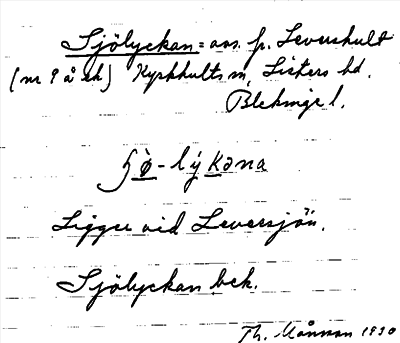 Sjölyckan = avs. fr. Levershult
(nr 9 å ek) Kyrkhults sn, Listers hd.
Blekinge l.
Ligger vid Leversjön.
Sjölyckan bek.
Th. Månsson 1930